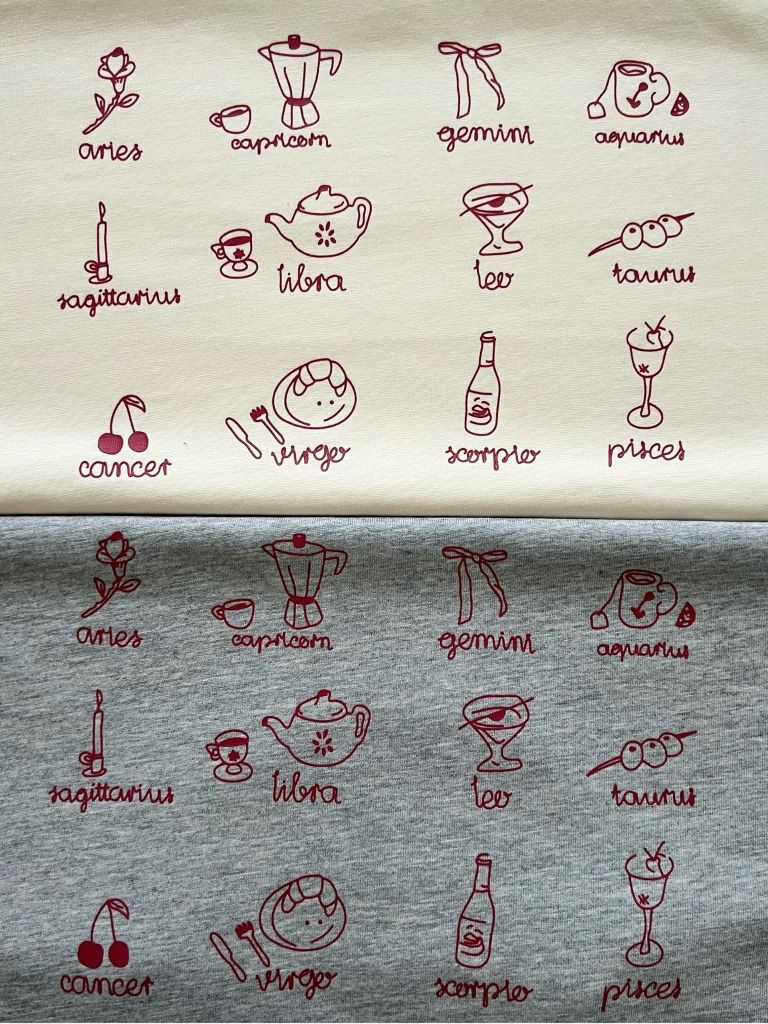 aries capricorn gemini aquarius
sagittarius libra leo taurus
cancer virgo scorpio pisces
aries capricorn gemini aquarius
sagittarius libra leo taurus
cancer virgo scorpio pisces